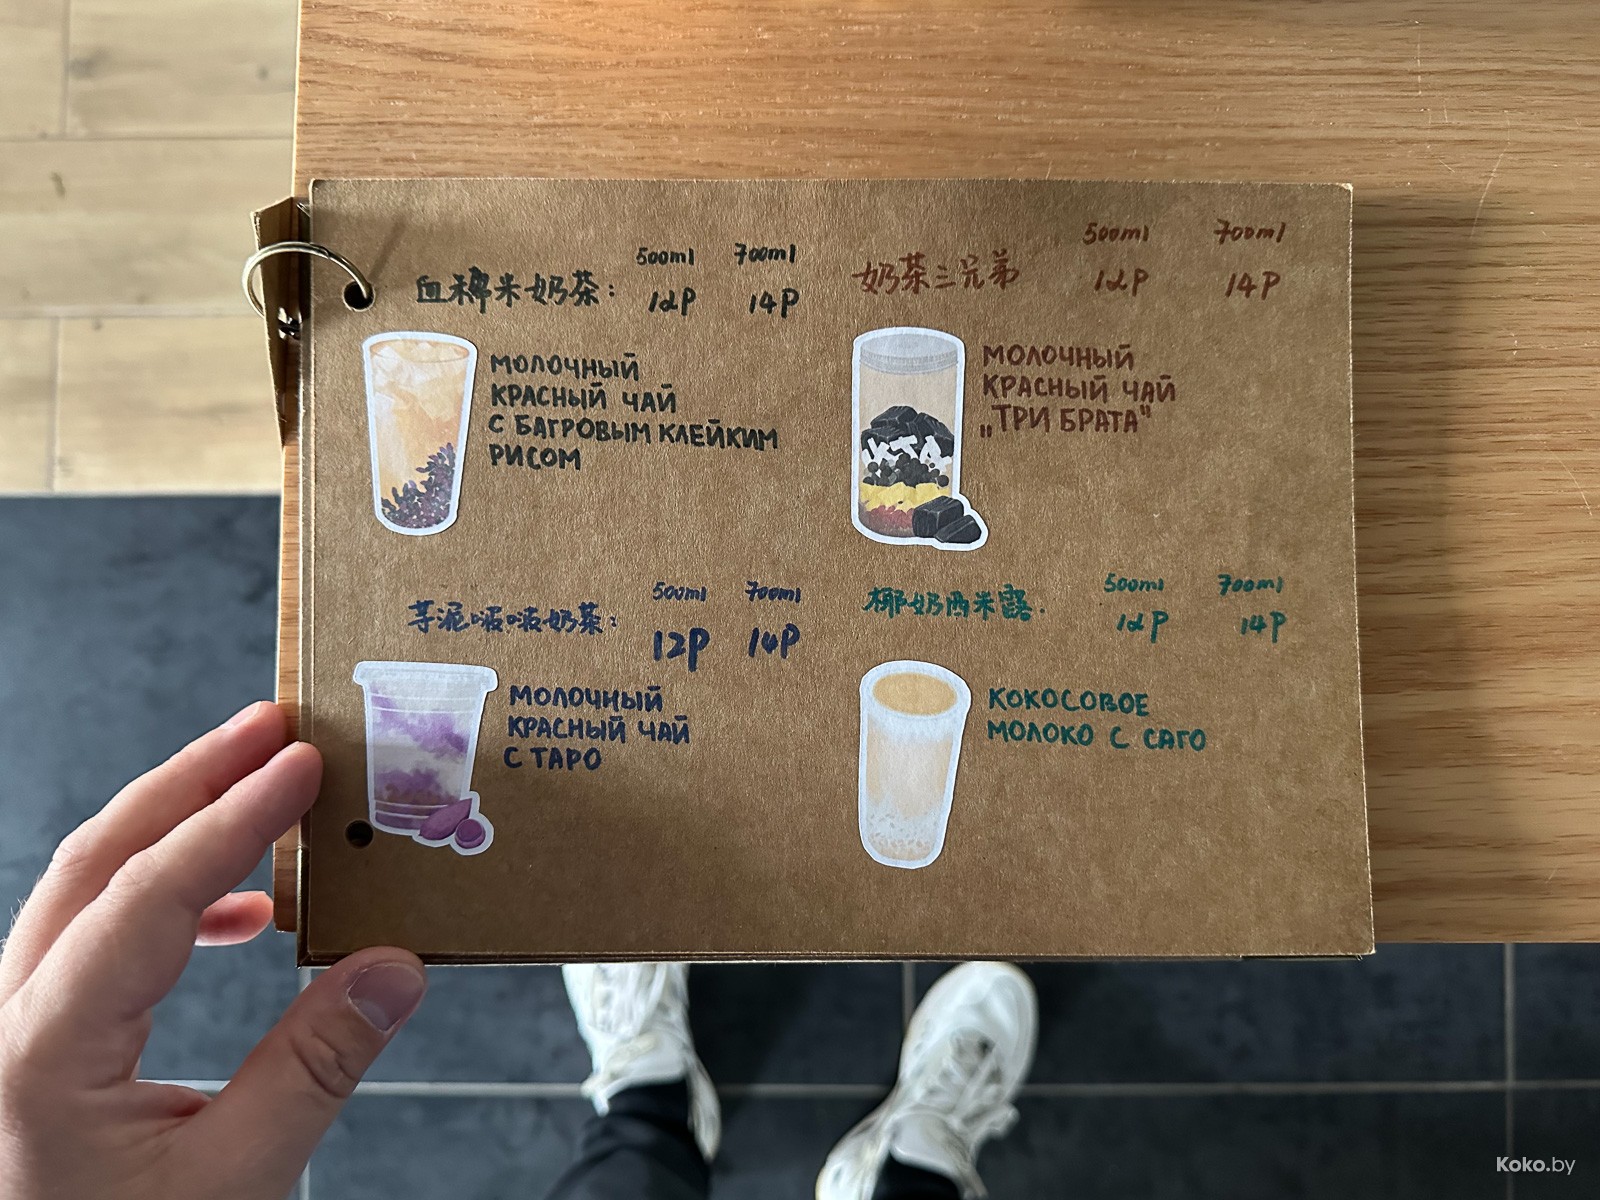 500ml 700ml
血稞米奶茶: 12P 14P
МОЛОЧНЫЙ
КРАСНЫЙ ЧАЙ
С БАГРОВЫМ КЛЕЙКИМ
РИСОМ
500ml 700ml
奶茶三兄弟 12P 14P
МОЛОЧНЫЙ
КРАСНЫЙ ЧАЙ
„ТРИ БРАТА"
500ml 700ml
芋泥啵啵奶茶: 12P 14P
МОЛОЧНЫЙ
КРАСНЫЙ ЧАЙ
С ТАРО
500ml 700ml
椰奶西米露. 12P 14P
КОКОСОВОЕ
МОЛОКО С САГО
Koko.by